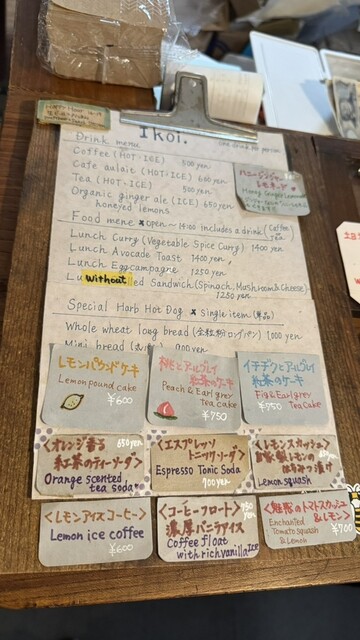 IKoi.
Drink menu
one drink per person
Coffee (HOT・ICE) 500 yen
Cafe aulait (HOT・ICE) 650 yen
Tea (HOT・ICE) 500 yen
Organic ginger ale (ICE) 650 yen
honeyed lemons
ハニージンジャー
レモネード
Honey Ginger Lemonade
Food mene × open ~ 15:00 includes a drink (Coffee
Tea)
Lunch Curry (Vegetable Spice Curry) 1400 yen
Lunch Avocado Toast 1400 yen
Lunch Eggcampagne 1250 yen
Without
ed Sandwich (Spinach, Mushroom & Cheese)
1250 yen
Special Harb Hot Dog × Single item (単品)
Whole wheat long bread (全粒粉ロングパン) 1000 yen
Mini bread
レモンパウンドケーキ
Lemon pound cake
¥600
桃とアールグレイ
紅茶のケーキ
Peach & Earl grey
Tea cake
¥750
イチヂクとアールグレイ
紅茶のケーキ
Fig & Earl grey
Tea Cake
¥750
<オレンジ香る 650yen
紅茶のティーソーダ>
Orange scented
tea soda
<エスプレッソ
トニックソーダ>
Espresso Tonic Soda
700 yen
<レモンスカッシュ>
自家製レモンの
はちみつ漬け
Lemon squash
<レモンアイスコーヒー>
Lemon ice coffee
¥600
<コーヒーフロート> 750 yen
濃厚バニラアイス
Coffee float
with rich vanilla Ice
<魅惑のトマトスカッシュ
&レモン>
Enchanted
Tomato squash
& Lemon
¥700